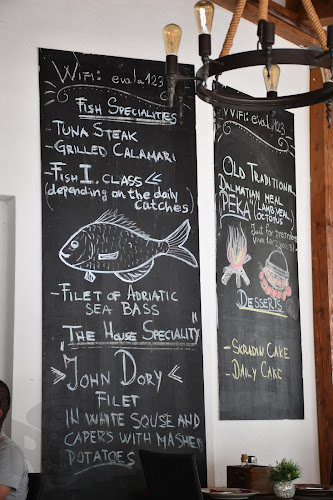 WiFi: evala123
Fish Specialities
Tuna Steak
- Grilled Calamari
- Fish I. class
(depending on the daily
catches)
- Filet of Adriatic
Sea Bass
"The House Speciality"
"John Dory"
Filet
in white souse and
capers with mashed
potatoes
WiFi: evala123
Old Traditional
Dalmatian meal
"PEKA" (lamb, veal,
octopus
Just for preorders
Desserts
- Skradin Cake
- Daily Cake